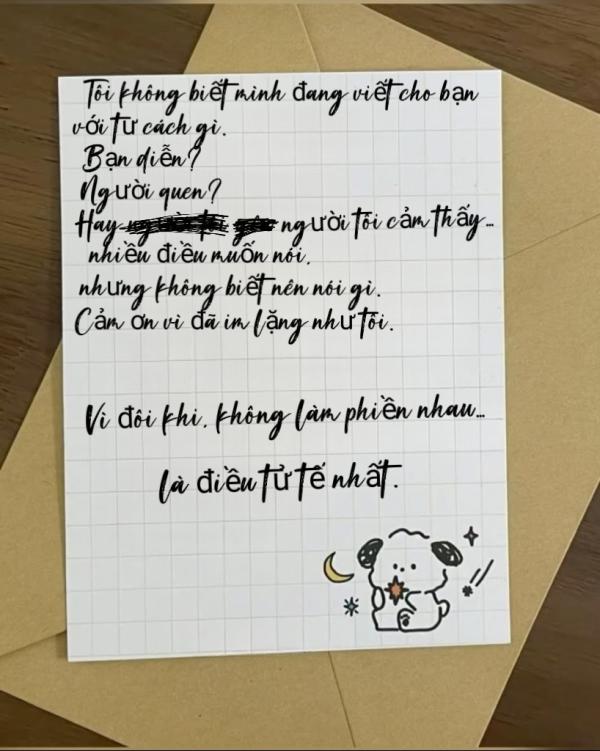 Tôi không biết mình đang viết cho bạn
với tư cách gì.
Bạn diễn?
Người quen?
Hay người tôi cảm thấy...
nhiều điều muốn nói.
nhưng không biết nên nói gì.
Cảm ơn vì đã im lặng như tôi.
Vì đôi khi, không làm phiền nhau...
là điều tử tế nhất.